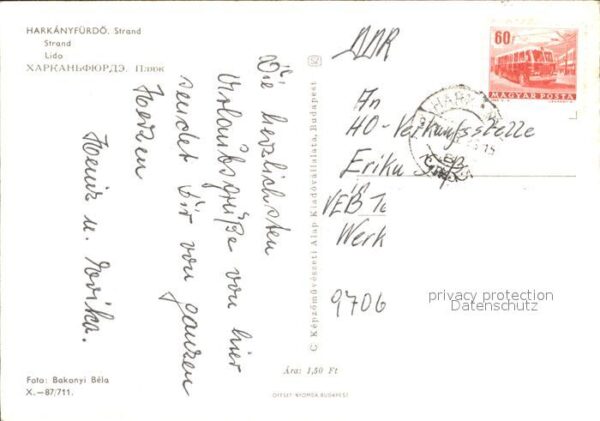 HARKÁNYFÜRDŐ. Strand
Strand
Lido
ХАРКАНЬФЮРДЭ. Пляж
Die herzlichsten
Urlaubsgrüße von hier
sendet Dir von ganzen
Herzen
Heinz u. Erika.
Foto: Bakonyi Béla
X.—87/711.
C Képzőművészeti Alap Kiadóvállalata, Budapest
Ára: 1,50 Ft
OFFSET NYOMDA BUDAPEST
60f
MAGYAR POSTA
DDR
An
HO-Verkaufsstelle
Erika
VEB
Werk
9706
privacy protection
Datenschutz